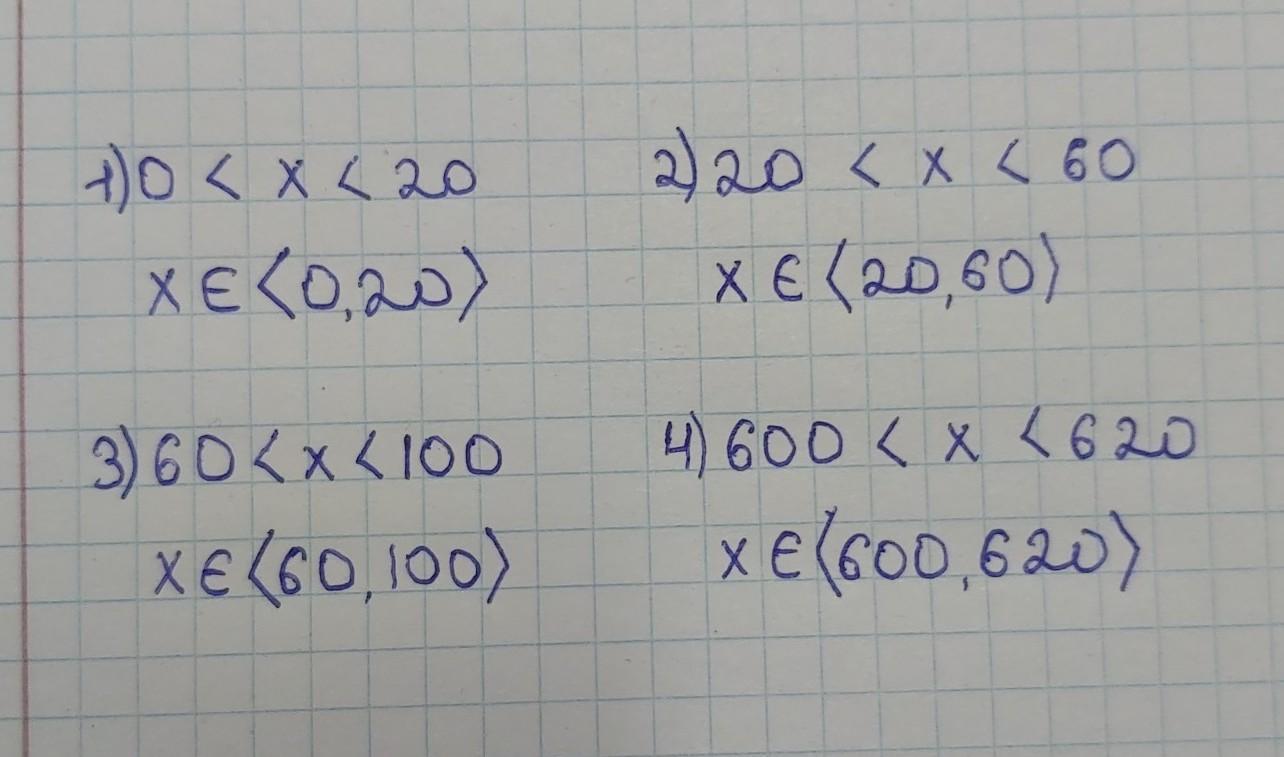 1) 0 < x < 20
x ∈ ⟨0,20⟩
2) 20 < x < 60
x ∈ ⟨20,60⟩
3) 60 < x < 100
x ∈ ⟨60,100⟩
4) 600 < x < 620
x ∈ ⟨600,620⟩